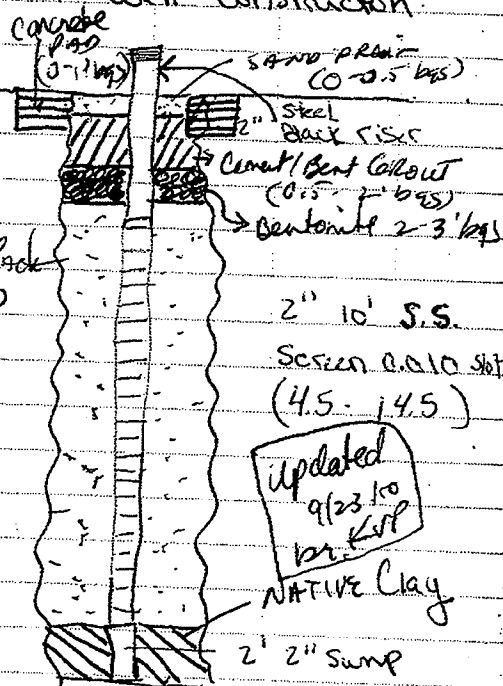 Well Construction
Concrete
PAD
(0-1' bgs)
SAND DRAIN
(0-0.5 bgs)
2" Steel
Black riser
Cement/Bent GROUT
(0.5-2' bgs)
Bentonite 2-3' bgs
2" 10' S.S.
Screen 0.010 slot
(4.5-14.5)
Updated
9/23/10
KVP
NATIVE Clay
2' 2" Sump